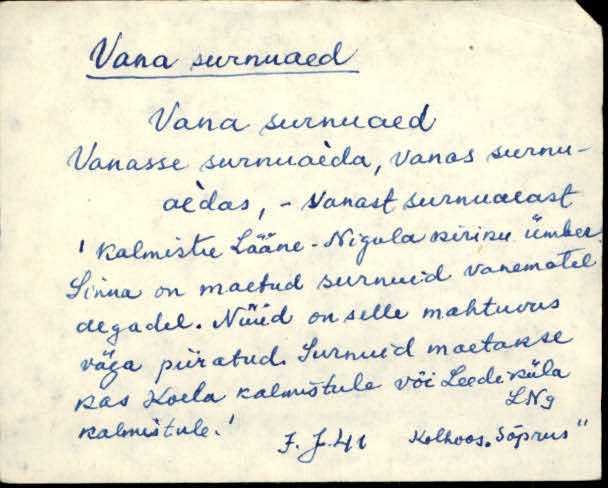 Vana surnuaed
Vana surnuaed
Vanasse surnuaèda, vanas surnu-
aèdas, - vanast surnuaiast
' kalmistu Lääne-Nigula kiriku ümber.
Sinna on maetud surnuid vanematel
aegadel. Nüüd on selle mahtuvus
väga piiratud. Surnuid maetakse
kas Koela kalmistule või Leediküla
LNg
kalmistule.'
F. J. 41 Kolhoos „Sõprus"